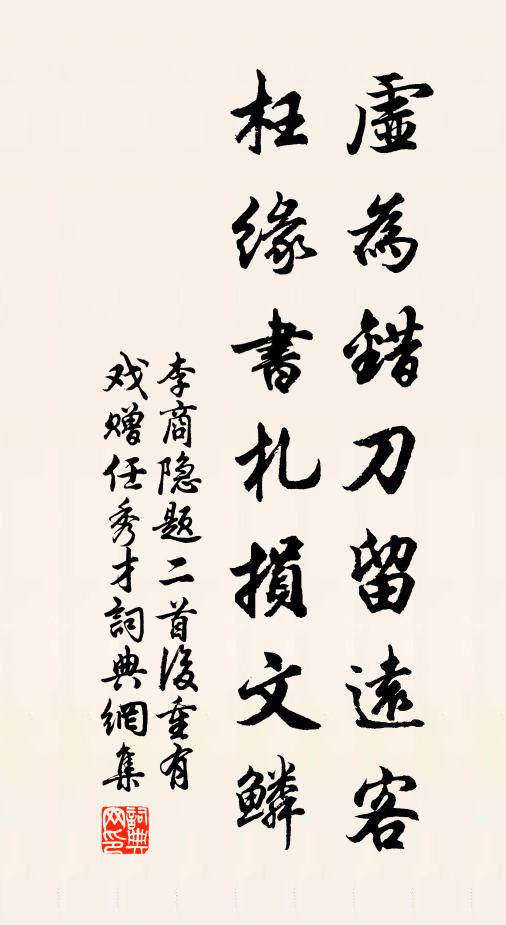 虛為錯刀留遠客
枉緣書札損文鱗
李商隐题二首後重有
戏赠任秀才詞典網集
詞典網印